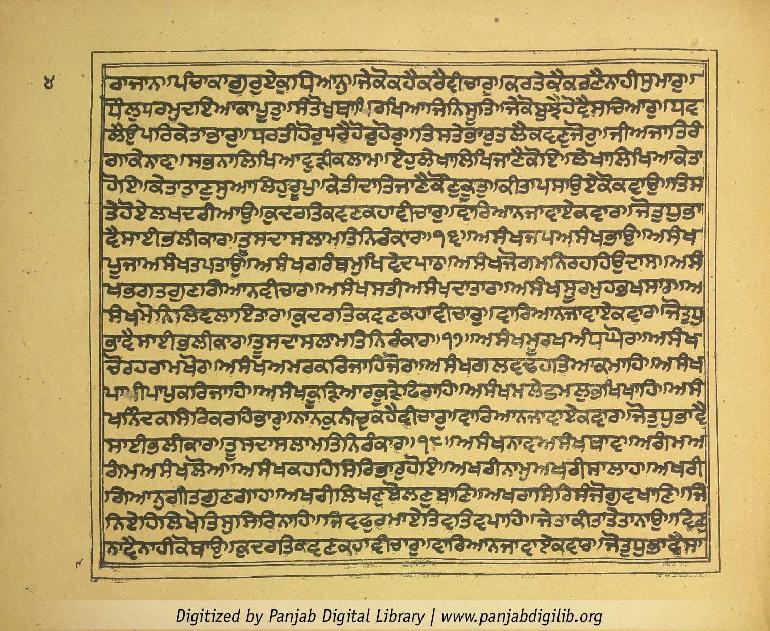 ੪
ਰਾਜਾਨਾ।ਪੰਚਾਕਾਗੁਰੁਏਕੁਧਿਆਨੁ।ਜੇਕੋਕਹੈਕਰੈਵੀਚਾਰੁ।ਕਰਤੇਕੈਕਰਣੈਨਾਹੀਸੁਮਾਰੁ।
ਧੌਲੁਧਰਮੁਦਇਆਕਾਪੂਤੁ।ਸੰਤੋਖੁਥਾਪਿਰਖਿਆਜਿਨਿਸੂਤਿ।ਜੇਕੋਬੁਝੈਹੋਵੈਸਚਿਆਰੁ।ਧਵ
ਲੈਉਪਰਿਕੇਤਾਭਾਰੁ।ਧਰਤੀਹੋਰੁਪਰੈਹੋਰੁਹੋਰੁ।ਤਿਸਤੇਭਾਰੁਤਲੈਕਵਣੁਜੋਰੁ।ਜੀਅਜਾਤਿਰੰ
ਗਾਕੇਨਾਵ।ਸਭਨਾਲਿਖਿਆਵੁੜੀਕਲਾਮ।ਏਹੁਲੇਖਾਲਿਖਿਜਾਣੈਕੋਇ।ਲੇਖਾਲਿਖਿਆਕੇਤਾ
ਹੋਇ।ਕੇਤਾਤਾਣੁਸੁਆਲਿਹੁਰੂਪੁ।ਕੇਤੀਦਾਤਿਜਾਣੈਕੌਣੁਕੂਤੁ।ਕੀਤਾਪਸਾਉਏਕੋਕਵਾਉ।ਤਿਸ
ਤੇਹੋਏਲਖਦਰੀਆਉ।ਕੁਦਰਤਿਕਵਣਕਹਾਵੀਚਾਰੁ।ਵਾਰਿਆਨਜਾਵਾਏਕਵਾਰ।ਜੋਤੁਧੁਭਾ
ਵੈਸਾਈਭਲੀਕਾਰ।ਤੂਸਦਾਸਲਾਮਤਿਨਿਰੰਕਾਰ।੧੬।ਅਸੰਖਜਪਅਸੰਖਭਾਉ।ਅਸੰਖ
ਪੂਜਾਅਸੰਖਤਪਤਾਉ।ਅਸੰਖਗਰੰਥਮੁਖਿਵੇਦਪਾਠ।ਅਸੰਖਜੋਗਮਨਿਰਹਹਿਉਦਾਸ।ਅਸੰ
ਖਭਗਤਗੁਣਗਿਆਨਵੀਚਾਰ।ਅਸੰਖਸਤੀਅਸੰਖਦਾਤਾਰ।ਅਸੰਖਸੂਰਮੁਹਭਖਸਾਰ।ਅ
ਸੰਖਮੋਨਿਲਿਵਲਾਇਤਾਰ।ਕੁਦਰਤਿਕਵਣਕਹਾਵੀਚਾਰੁ।ਵਾਰਿਆਨਜਾਵਾਏਕਵਾਰ।ਜੋਤੁਧੁ
ਭਾਵੈਸਾਈਭਲੀਕਾਰ।ਤੂਸਦਾਸਲਾਮਤਿਨਿਰੰਕਾਰ।੧੭।ਅਸੰਖਮੂਰਖਅੰਧਘੋਰ।ਅਸੰਖ
ਚੋਰਹਰਾਮਖੋਰ।ਅਸੰਖਅਮਰਕਰਿਜਾਹਿਜੋਰ।ਅਸੰਖਗਲਵਢਹਤਿਆਕਮਾਹਿ।ਅਸੰਖ
ਪਾਪੀਪਾਪੁਕਰਿਜਾਹਿ।ਅਸੰਖਕੂੜਿਆਰਕੂੜੇਫਿਰਾਹਿ।ਅਸੰਖਮਲੇਛਮਲੁਭਖਿਖਾਹਿ।ਅਸੰ
ਖਨਿੰਦਕਸਿਰਿਕਰਹਿਭਾਰੁ।ਨਾਨਕੁਨੀਚੁਕਹੈਵੀਚਾਰੁ।ਵਾਰਿਆਨਜਾਵਾਏਕਵਾਰ।ਜੋਤੁਧੁਭਾਵੈ
ਸਾਈਭਲੀਕਾਰ।ਤੂਸਦਾਸਲਾਮਤਿਨਿਰੰਕਾਰ।੧੮।ਅਸੰਖਨਾਵਅਸੰਖਥਾਵ।ਅਗੰਮਅ
ਗੰਮਅਸੰਖਲੋਅ।ਅਸੰਖਕਹਹਿਸਿਰਿਭਾਰੁਹੋਇ।ਅਖਰੀਨਾਮੁਅਖਰੀਸਾਲਾਹ।ਅਖਰੀ
ਗਿਆਨੁਗੀਤਗੁਣਗਾਹ।ਅਖਰੀਲਿਖਣੁਬੋਲਣੁਬਾਣਿ।ਅਖਰਾਸਿਰਿਸੰਜੋਗੁਵਖਾਣਿ।ਜਿ
ਨਿਏਹਿਲਿਖੇਤਿਸੁਸਿਰਿਨਾਹਿ।ਜਿਵਫੁਰਮਾਏਤਿਵਤਿਵਪਾਹਿ।ਜੇਤਾਕੀਤਾਤੇਤਾਨਾਉ।ਵਿਣੁ
ਨਾਵੈਨਾਹੀਕੋਥਾਉ।ਕੁਦਰਤਿਕਵਣਕਹਾਵੀਚਾਰੁ।ਵਾਰਿਆਨਜਾਵਾਏਕਵਾਰ।ਜੋਤੁਧੁਭਾਵੈਸਾ
Digitized by Panjab Digital Library | www.panjabdigilib.org